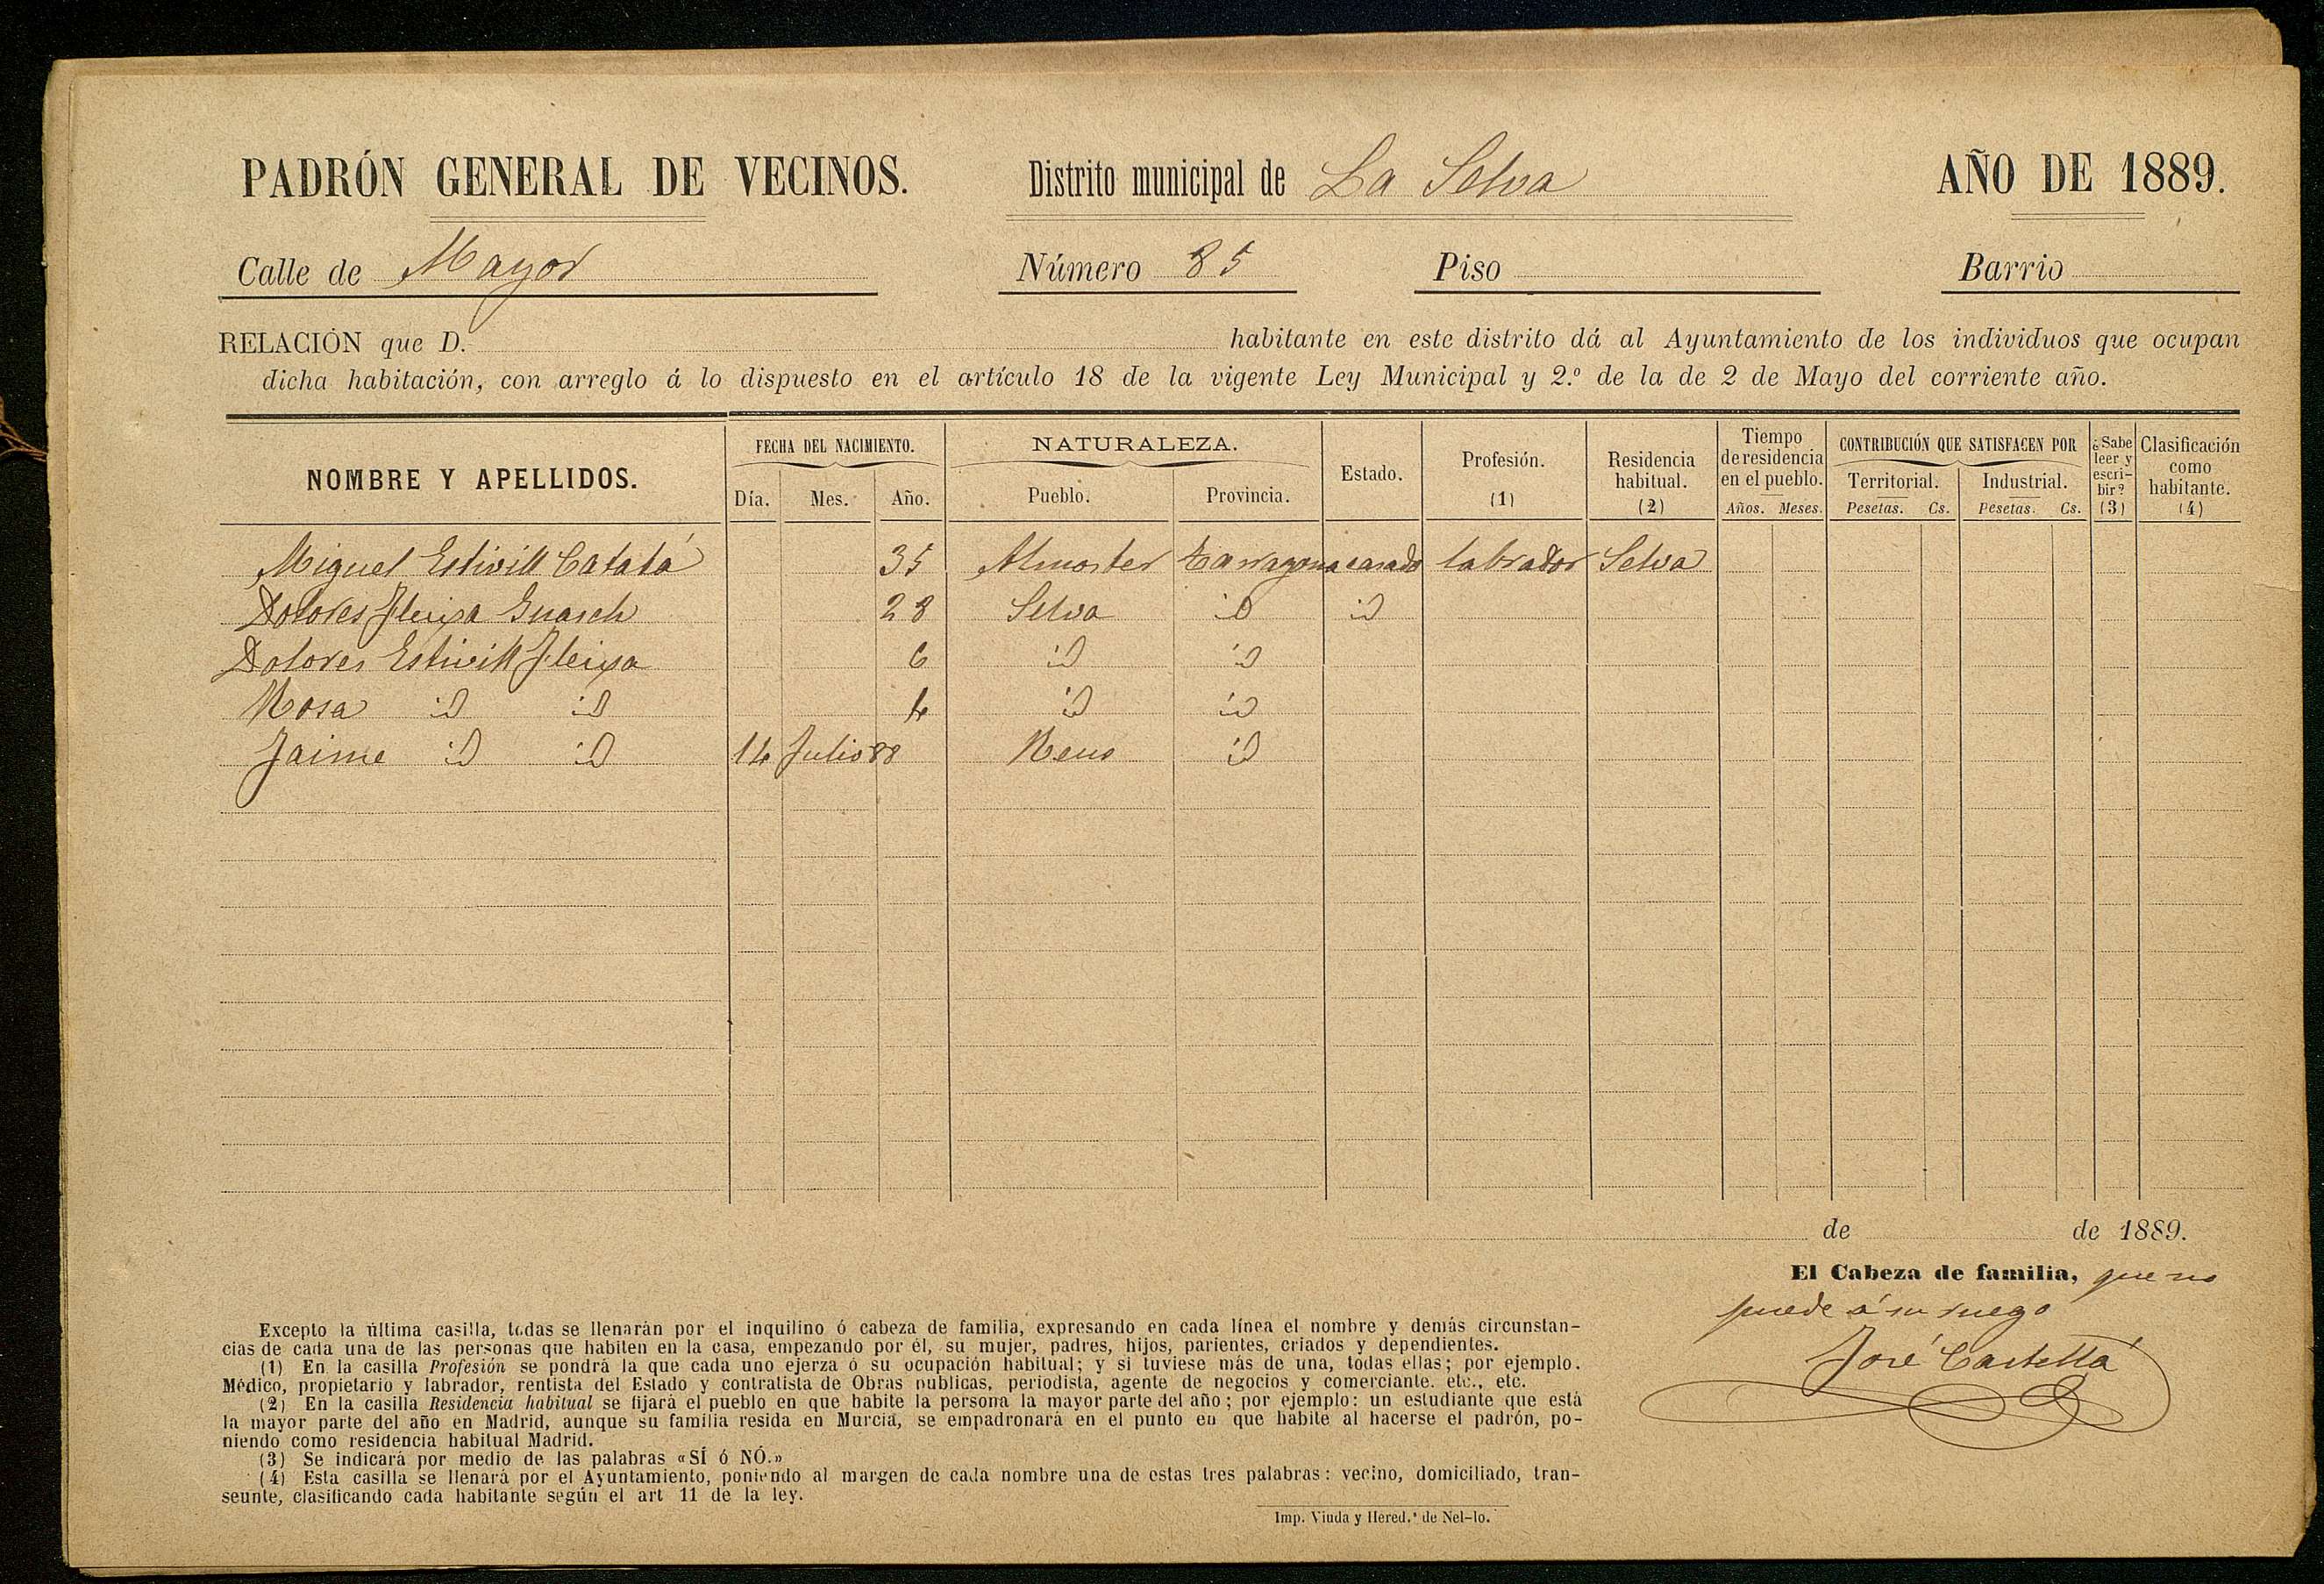 PADRÓN GENERAL DE VECINOS. Distrito municipal de La Selva AÑO DE 1889.
Calle de Mayor Número 85 Piso Barrio
RELACIÓN que D. habitante en este distrito dá al Ayuntamiento de los individuos que ocupan
dicha habitación, con arreglo á lo dispuesto en el artículo 18 de la vigente Ley Municipal y 2.º de la de 2 de Mayo del corriente año.
NOMBRE Y APELLIDOS. FECHA DEL NACIMIENTO. Día. Mes. Año. NATURALEZA. Pueblo. Provincia. Estado. Profesión. (1) Residencia habitual. (2) Tiempo de residencia en el pueblo. Años. Meses. CONTRIBUCIÓN QUE SATISFACEN POR Territorial. Pesetas. Cs. Industrial. Pesetas. Cs. ¿Sabe leer y escri-bir? (3) Clasificación como habitante. (4)
Miguel Estivill Catalá 35 Almoster Tarragona casado labrador Selva
Dolores Fleixa Guasch 28 Selva id id
Dolores Estivill Fleixa 6 id id
Rosa id id 4 id id
Jaime id id 14 Julio 88 Reus id
de de 1889.
El Cabeza de familia, que no
puede á su ruego
José Castellá
Excepto la última casilla, todas se llenarán por el inquilino ó cabeza de familia, expresando en cada línea el nombre y demás circunstan-
cias de cada una de las personas que habiten en la casa, empezando por él, su mujer, padres, hijos, parientes, criados y dependientes.
(1) En la casilla Profesión se pondrá la que cada uno ejerza ó su ocupación habitual; y si tuviese más de una, todas ellas; por ejemplo.
Médico, propietario y labrador, rentista del Estado y contratista de Obras publicas, periodista, agente de negocios y comerciante. etc., etc.
(2) En la casilla Residencia habitual se fijará el pueblo en que habite la persona la mayor parte del año; por ejemplo: un estudiante que está
la mayor parte del año en Madrid, aunque su familia resida en Murcia, se empadronará en el punto en que habite al hacerse el padrón, po-
niendo como residencia habitual Madrid.
(3) Se indicará por medio de las palabras «SÍ ó NÓ.»
(4) Esta casilla se llenará por el Ayuntamiento, poniendo al margen de cada nombre una de estas tres palabras: vecino, domiciliado, tran-
seunte, clasificando cada habitante según el art 11 de la ley.
Imp. Viuda y Hered.s de Nel-lo.